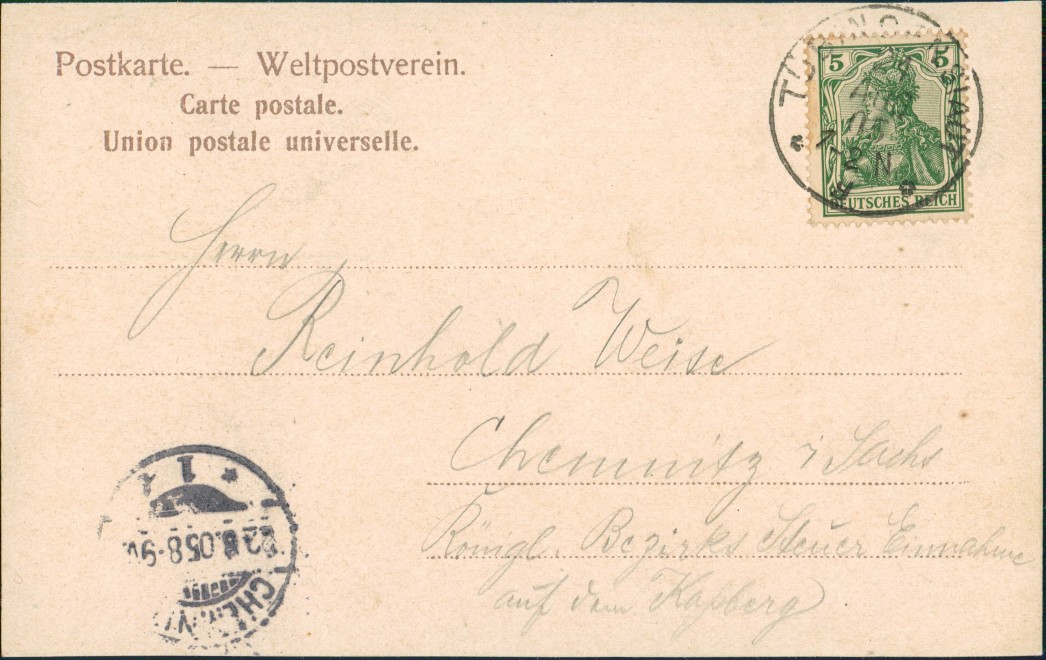 Postkarte. — Weltpostverein.
Carte postale.
Union postale universelle.
5 5
DEUTSCHES REICH
Herrn
Reinhold Weise
Chemnitz i Sachs
Königl. Bezirks Steuer Einnahme
auf dem Kapberg
* 1
.05.8-9V.